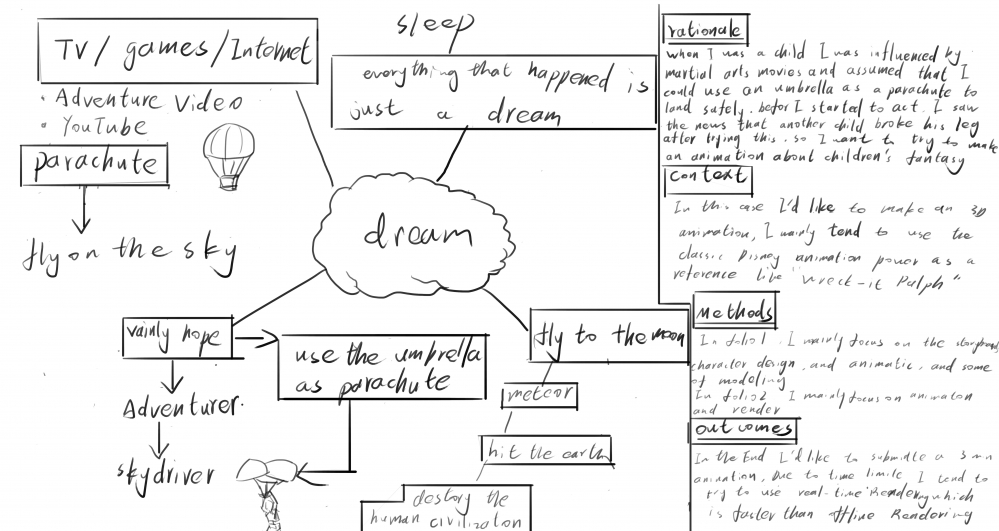 TV / games / Internet
· Adventure Video
· YouTube
parachute
fly on the sky
sleep
everything that happened is
just a dream
dream
vainly hope
Adventurer.
skydriver
use the umbrella
as parachute
fly to the moon
meteor
hit the earth
destory the
human civilization
rationale
when I was a child I was influenced by
martial arts movies and assumed that I
could use an umbrella as a parachute to
land safely. befor I started to act. I saw
the news that another child broke his leg
after trying this. so I want to try to make
an animation about children's fantasy
context
In this case I'd like to make an 3D
animation, I mainly tend to use the
classic Disney animation power as a
reference like "wreck-it Palph"
Methods
In folio1. I mainly focus on the storyboard,
character design, and animatic, and some
of modeling
In folio2 I mainly focus on animation
and render
outcomes
In the End I'd like to submitte a 3 min
animation, Due to time limite, I tend to
try to use real-time Rendering which
is faster than offline Rendering